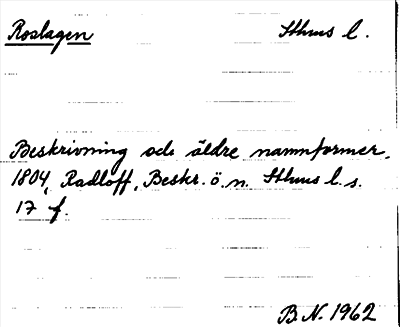 Roslagen Sthms l.
Beskrivning och äldre namnformer.
1804, Radloff, Beskr. ö. n. Sthms l. s.
17 f.
B.N. 1962